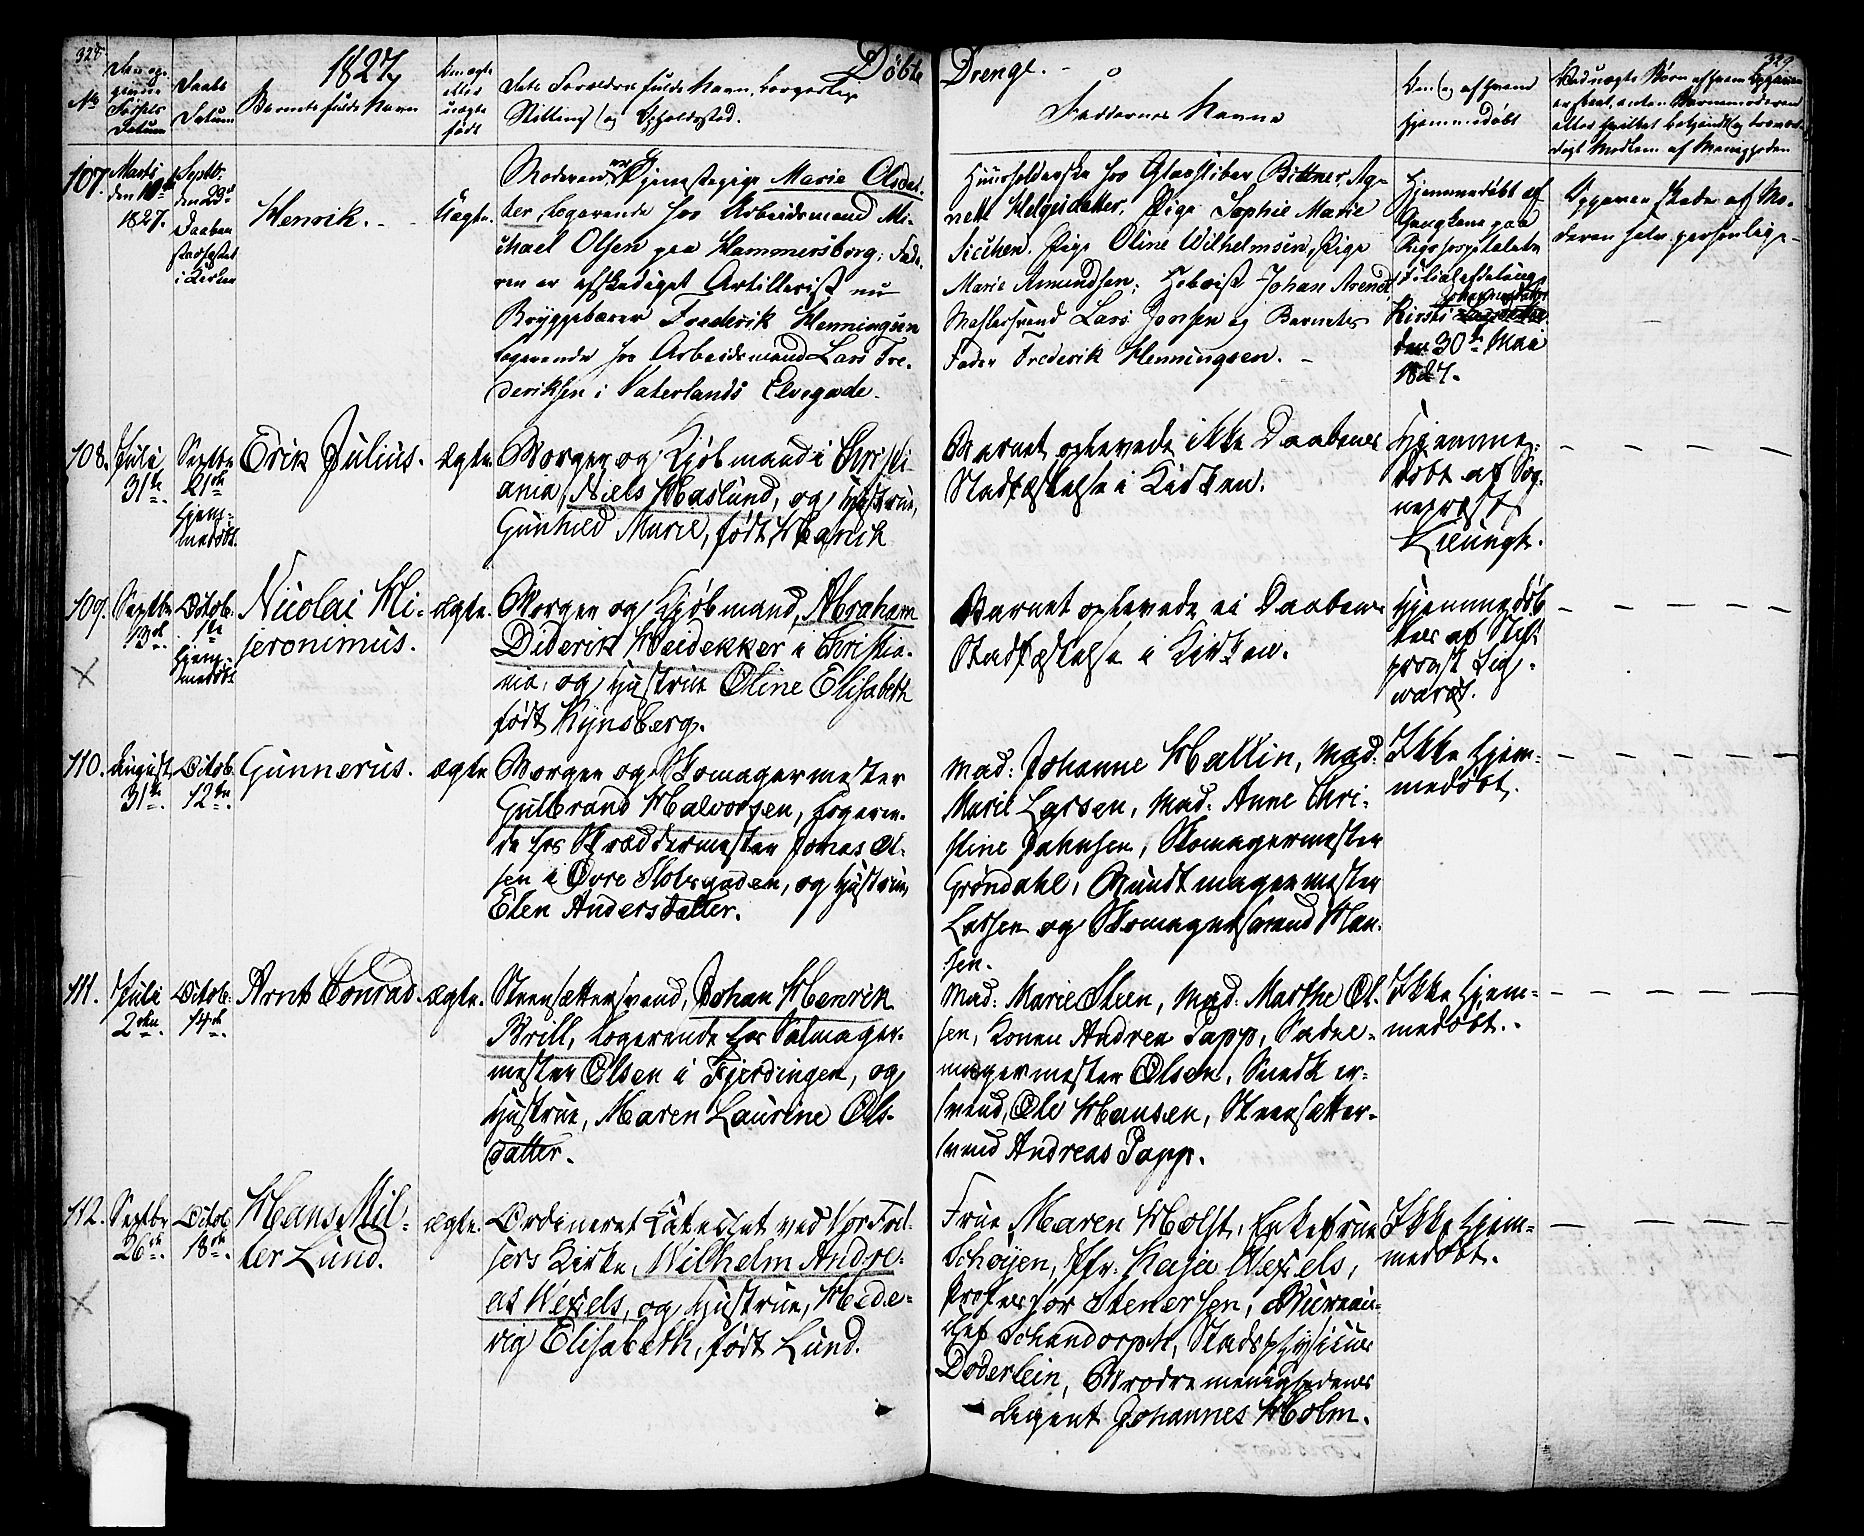 328
1827
Døbte
Drenge.
329
No
Den op-
givne
Fødsels
Datum
Daabs
Datum
Barnets fulde Navn
Om ægte
eller
uægte
født
Dets Forældres fulde Navn, borgerlige
Stilling og Opholdssted.
Faddernes Navne
Om og af hvem
hjemmedøbt
Ved uægte Børn af hvem Opgaven
er skeet, enten Barnemoderen
eller hvilket bekjendt og troevær-
digt Medlem af Menigheden
107.
Marts
den 10de
1827.
Septbr.
den 23de
Daaben
stadfæstet
i Kirken
Henrik.
Uægte.
Moderen er Pige Marie Olsdat-
ter, logerende hos Arbeidsmand Mi-
chael Olsen paa Hammersborg; Fade-
ren er afskediget Artillerist nu
Bryggebærer Frederik Henningsen
logerende hos Arbeidsmand Lars Fre-
deriksen i Vaterlands Elvegade.
Huusholderske hos Glasskiber Bittner, Ag-
nett Helgesdatter. Pige Sophie Marie
Pige Oline Wilhelmsen, Pige
Marie Amundsen; Hoboist Johan Arendt,
Lars Jonsen og Barnets
Fader Frederik Henningsen.
Hjemmedøbt af
Gangkone paa
Rigshospitalets
Filialafdeling
Kirsti
den 30te Mai
1827.
Opgaven skede af Mo-
deren selv personlige
108.
Juli
31te
Septbr
21de
hjem-
medøbt.
Erik Julius.
ægte.
Borger og Kjøbmand i Christi-
ania, Niels Haslund, og Hustrue,
Gunhild Marie, født
Barnet oplevede ikke Daabens
Stadfæstelse i Kirken.
Hjemme-
døbt af Sog-
neprest
109.
Septbr
13de
Octob.
1te
hjem-
medøbt
Nicolai Hi-
jeronimus.
ægte.
Borger og Kjøbmand, Abraham
Diderik Heidekker i Christia-
nia, og Hustrue Oline Elisabeth
født Kynsberg.
Barnet oplevede ei Daabens
Stadfæstelse i Kirken.
Hjemmedøb-
tes af Stift-
provst Sig-
wardt.
110.
August
31te
Octob.
12te
Gunnerus.
ægte
Borger og Skomagermester
Gulbrand Halvorsen, logeren-
de hos Skræddermester Jonas Ol-
sen i Øvre Slotsgaden, og Hustrue,
Elen Andersdatter.
Mad: Johanne Hallin, Mad:
Marie Larsen, Mad: Anne Chri-
stine Jahnsen, Skomagermester
Grøndahl, Bundtmagermester
Larsen og Skomagersvend Han-
sen.
Ikke hjem-
medøbt.
111.
Juli
2den
Octob.
14de
Arnt Conrad.
ægte.
Steensættersvend, Johan Henrik
Brill, logerende hos Salmager-
mester Olsen i Fjerdingen, og
Hustrue, Maren Laurine Ols-
datter.
Mad: Marie Steen, Mad: Marthe Ol-
sen, Konen Andrea Papp, Sadel-
magermester Olsen, Snedker-
svend, Ole Hansen, Steensætter-
svend Andreas Papp.
Ikke hjem-
medøbt.
112.
Septbr
26de
Octob.
18de
Hans Mil-
ter Lund.
ægte.
Ordineret Catechet ved Vor Frel-
sers Kirke, Wilhelm Andre-
as Wexels, og Hustrue, Hede-
vig Elisabeth, født Lund.
Frue Maren Holst, Enkefrue
Schøyen, Jfr: Kaja Wexels,
Professor Stenersen, Bureau-
chef Schandorph, Stadsphysicus
Døderlein, Brødremenighedens
Agent Johannes Holm.
Ikke hjem-
medøbt.